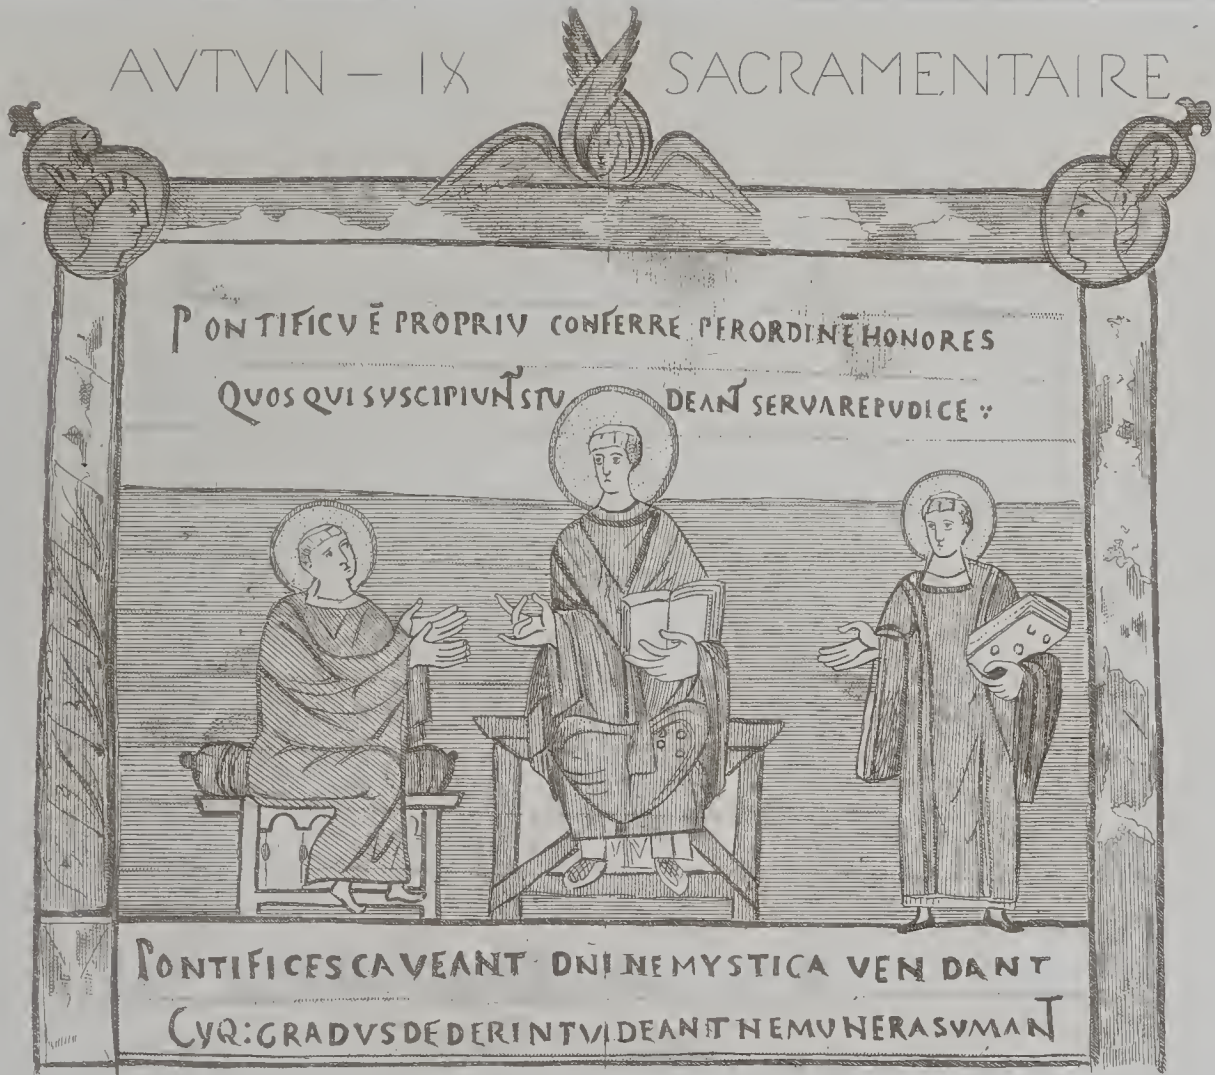 AVTVN – IX SACRAMENTAIRE
PONTIFICV Ē PROPRIV CONFERRE PERORDINĒ HONORES
QUOS QUI SVSCIPIUNT̄ STVDEANT̄ SERVARE PUDICE :·
PONTIFICES CAVEANT DN̄I NE MYSTICA VENDANT
CVQ: GRADVS DEDERINT VIDEANT NE MUNERA SVMANT̄